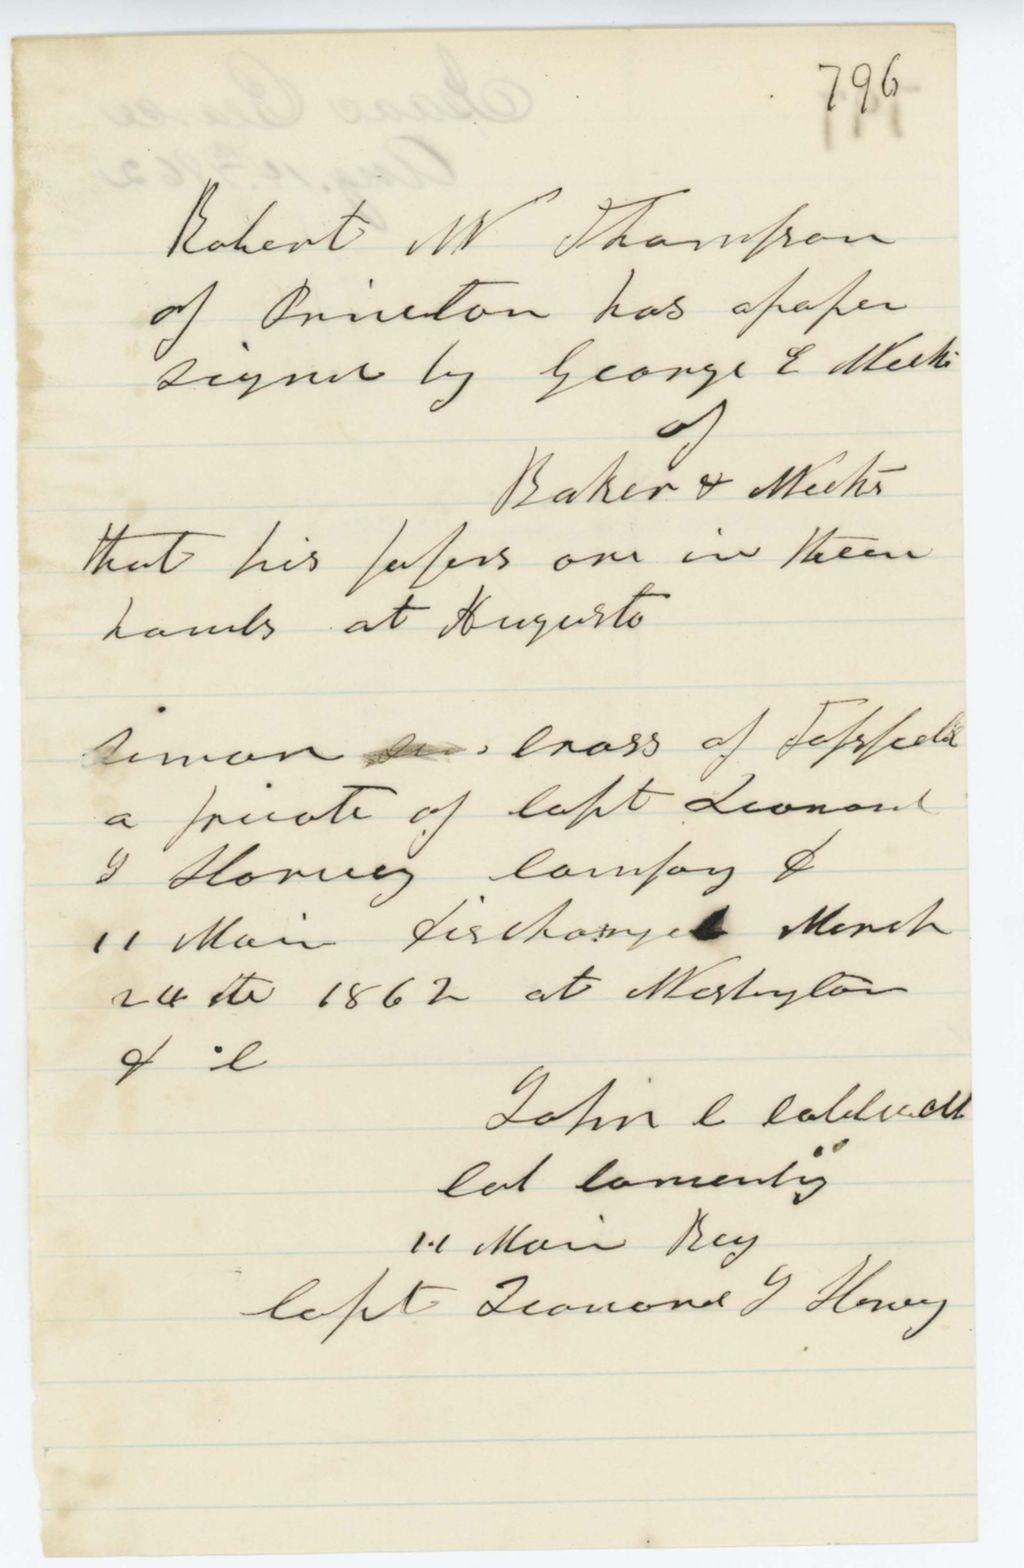 796
Robert W Thompson
of Princton has a paper
signed by George E Weeks
of
Baker & Weeks
that his papers are in their
hands at Augusta
Simon cross of Topsfield
a private of Capt Leonard
G Harvey Company D
11 Main discharged March
24 th 1862 at Washington
D C
John C Caldwell
Col Comending
11 Main Reg
Capt Leonard G Harvey